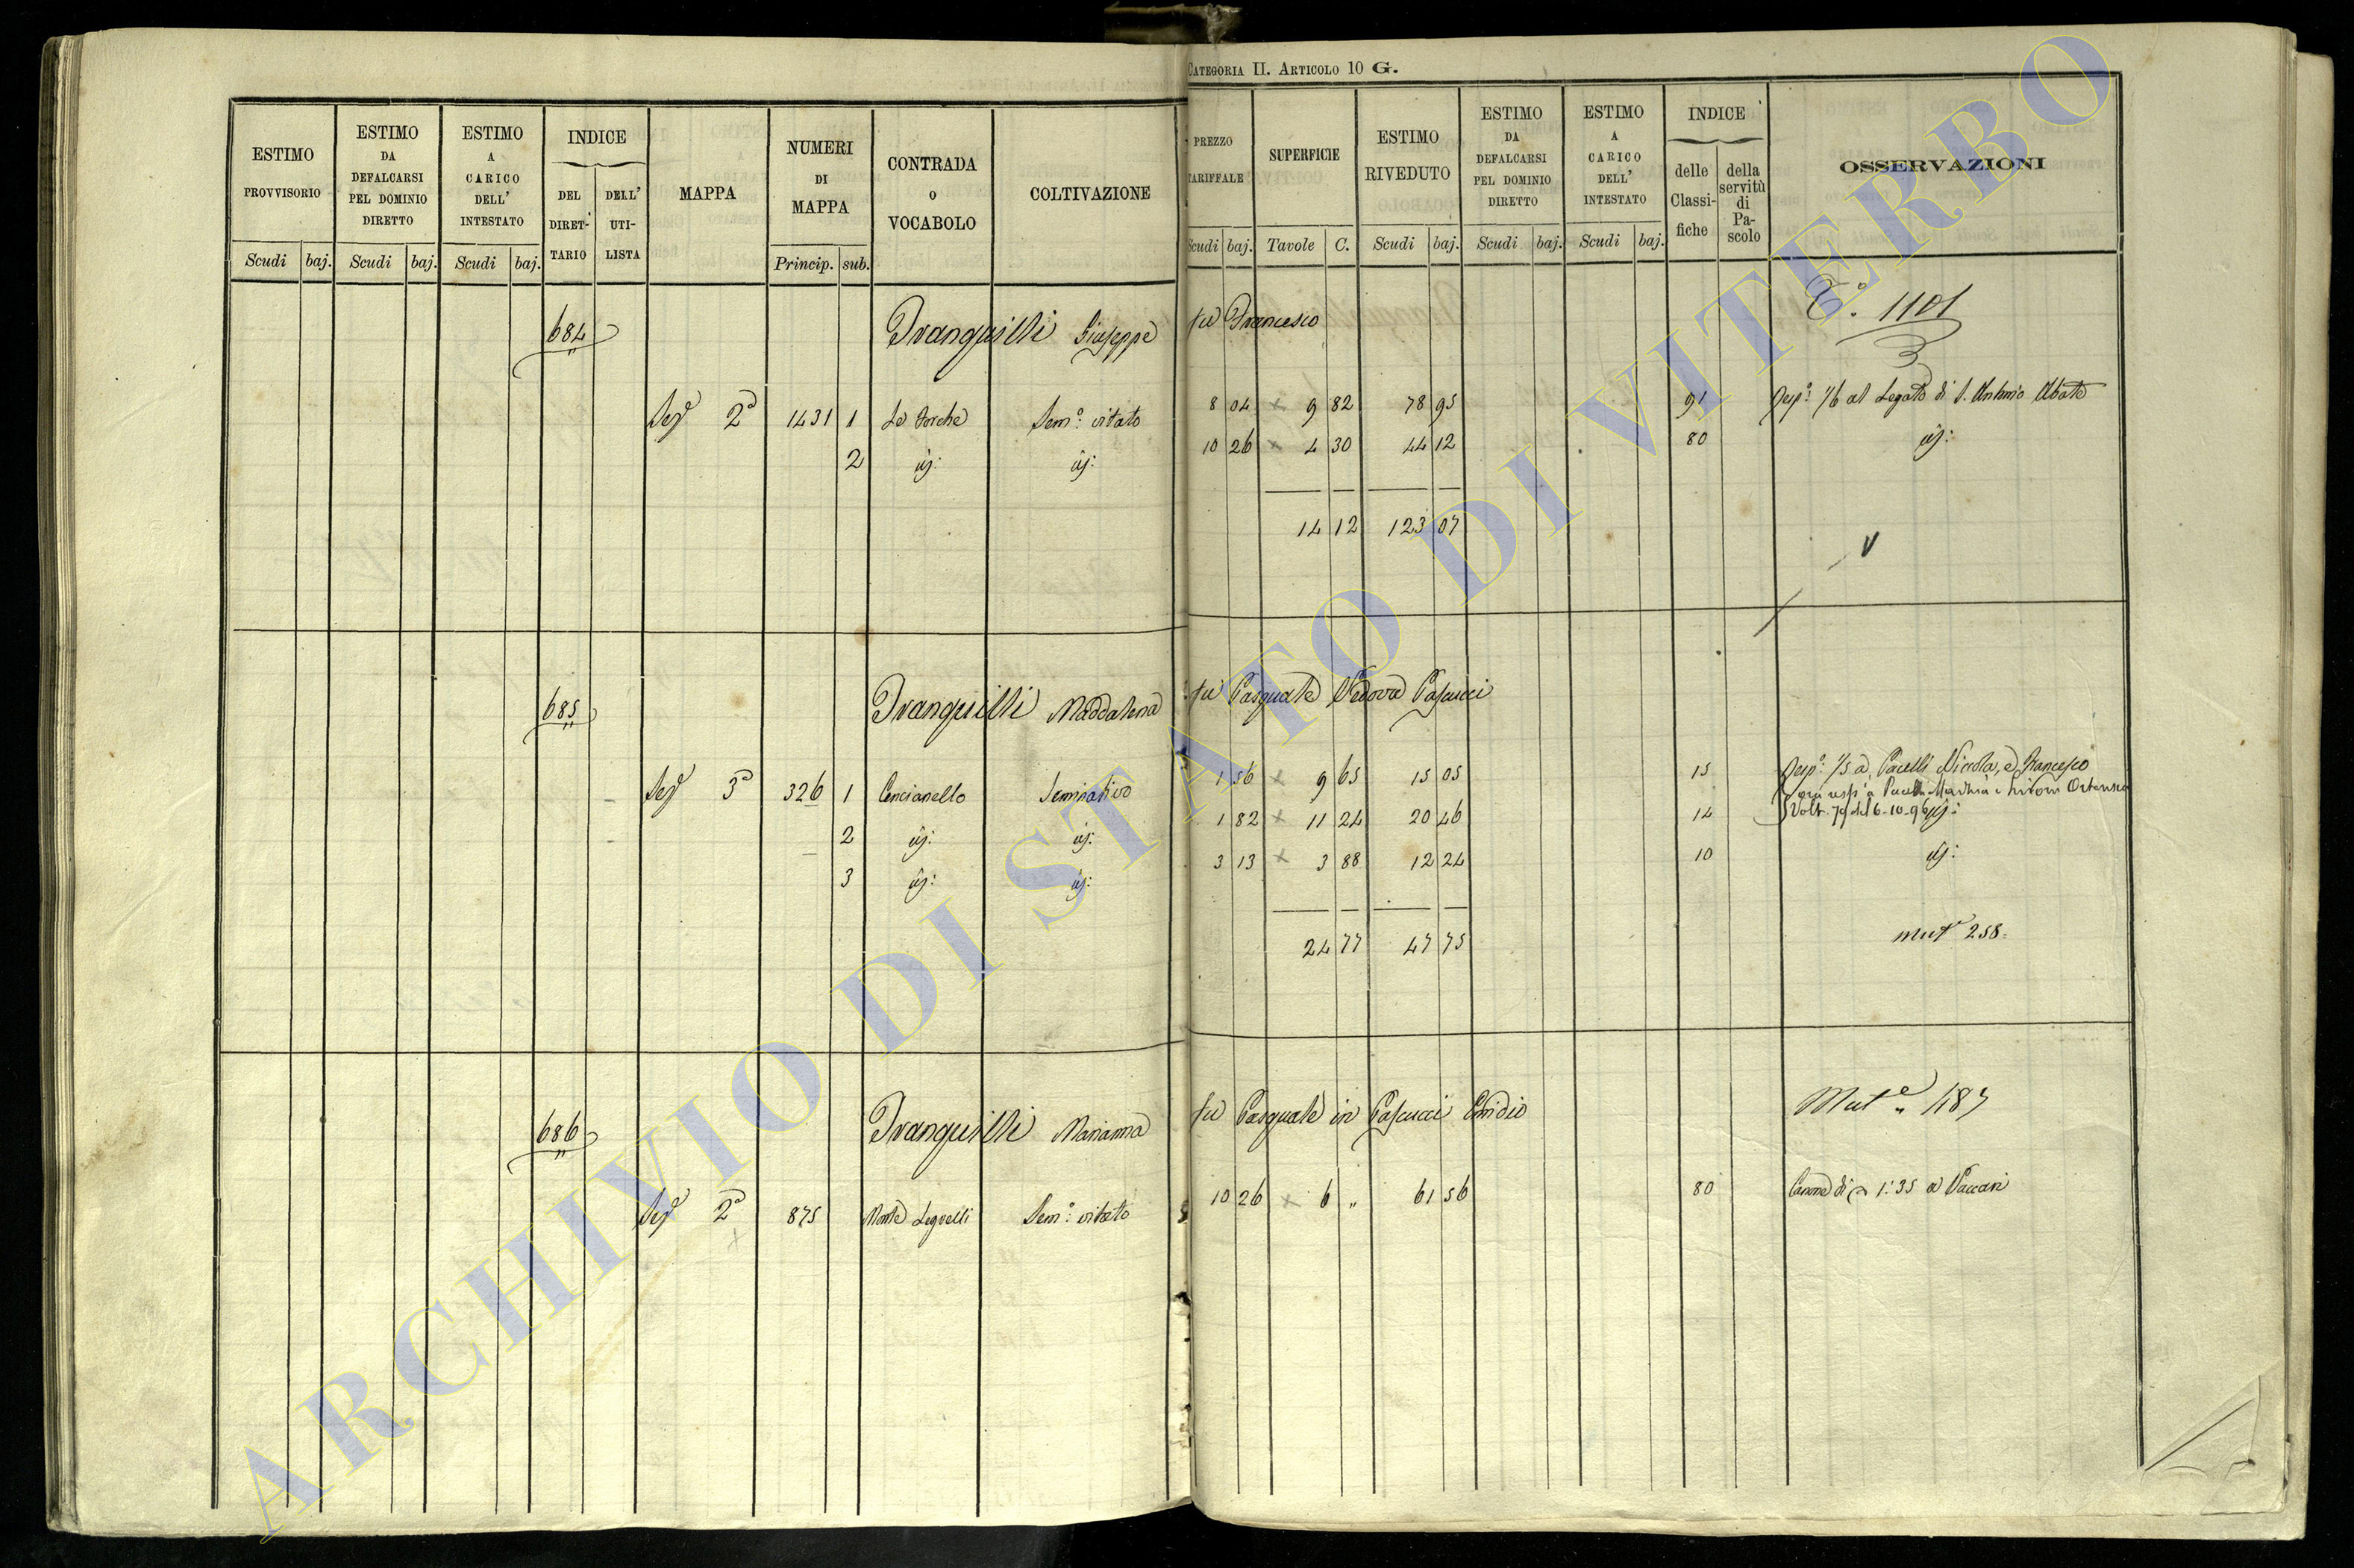 CATEGORIA II. ARTICOLO 10 G.
ESTIMO PROVVISORIO
ESTIMO DA DEFALCARSI PEL DOMINIO DIRETTO
ESTIMO A CARICO DELL' INTESTATO
INDICE
DEL DIRET-TARIO
DELL' UTI-LISTA
MAPPA
NUMERI DI MAPPA
CONTRADA o VOCABOLO
COLTIVAZIONE
PREZZO TARIFFALE
SUPERFICIE
ESTIMO RIVEDUTO
ESTIMO DA DEFALCARSI PEL DOMINIO DIRETTO
ESTIMO A CARICO DELL' INTESTATO
INDICE
delle Classi-fiche
della servitù di Pa-scolo
OSSERVAZIONI
Scudi baj. Scudi baj. Scudi baj. Princip. sub. Scudi baj. Tavole C. Scudi baj. Scudi baj. Scudi baj.
1101
684 Tranquilli Giuseppe fu Francesco
Sez 2a 1431 1 Le Forche Sem.o vitato 8 04 x 9 82 78 95 91 Resp.o 1/6 al Legato di S. Antonio Abate
2 id: id: 10 26 x 4 30 44 12 80 id:
14 12 123 07
V
685 Tranquilli Maddalena fu Pasquale Vedova Pascucci
Sez 3a 326 1 Cencianello Seminativo 1 56 x 9 65 15 05 15 Resp.o 1/5 a Pacelli Nicola, e Francesco
2 id: id: 1 82 x 11 24 20 46 14 Volt. 79 del 6-10-96 id:
3 id: id: 3 13 x 3 88 12 24 10 id:
24 77 47 75
mut 258
686 Tranquilli Marianna fu Pasquale in Pascucci Emidio
Mut.e 487
Sez 2a 875 Monte Sem.o vitato 10 26 x 6 " 61 56 80 Canone di 1:35 a Vaccari
ARCHIVIO DI STATO DI VITERBO